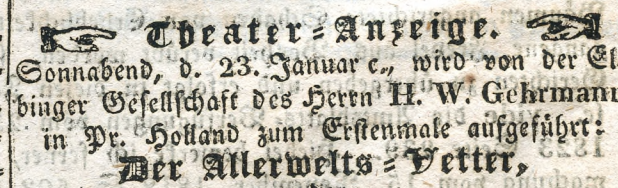 ☞ Theater=Anzeige. ☜
Sonnabend, d. 23. Januar c., wird von der El
binger Gesellschaft des Herrn H. W. Gehrmann
in Pr. Holland zum Erstenmale aufgeführt:
Der Allerwelts=Vetter,